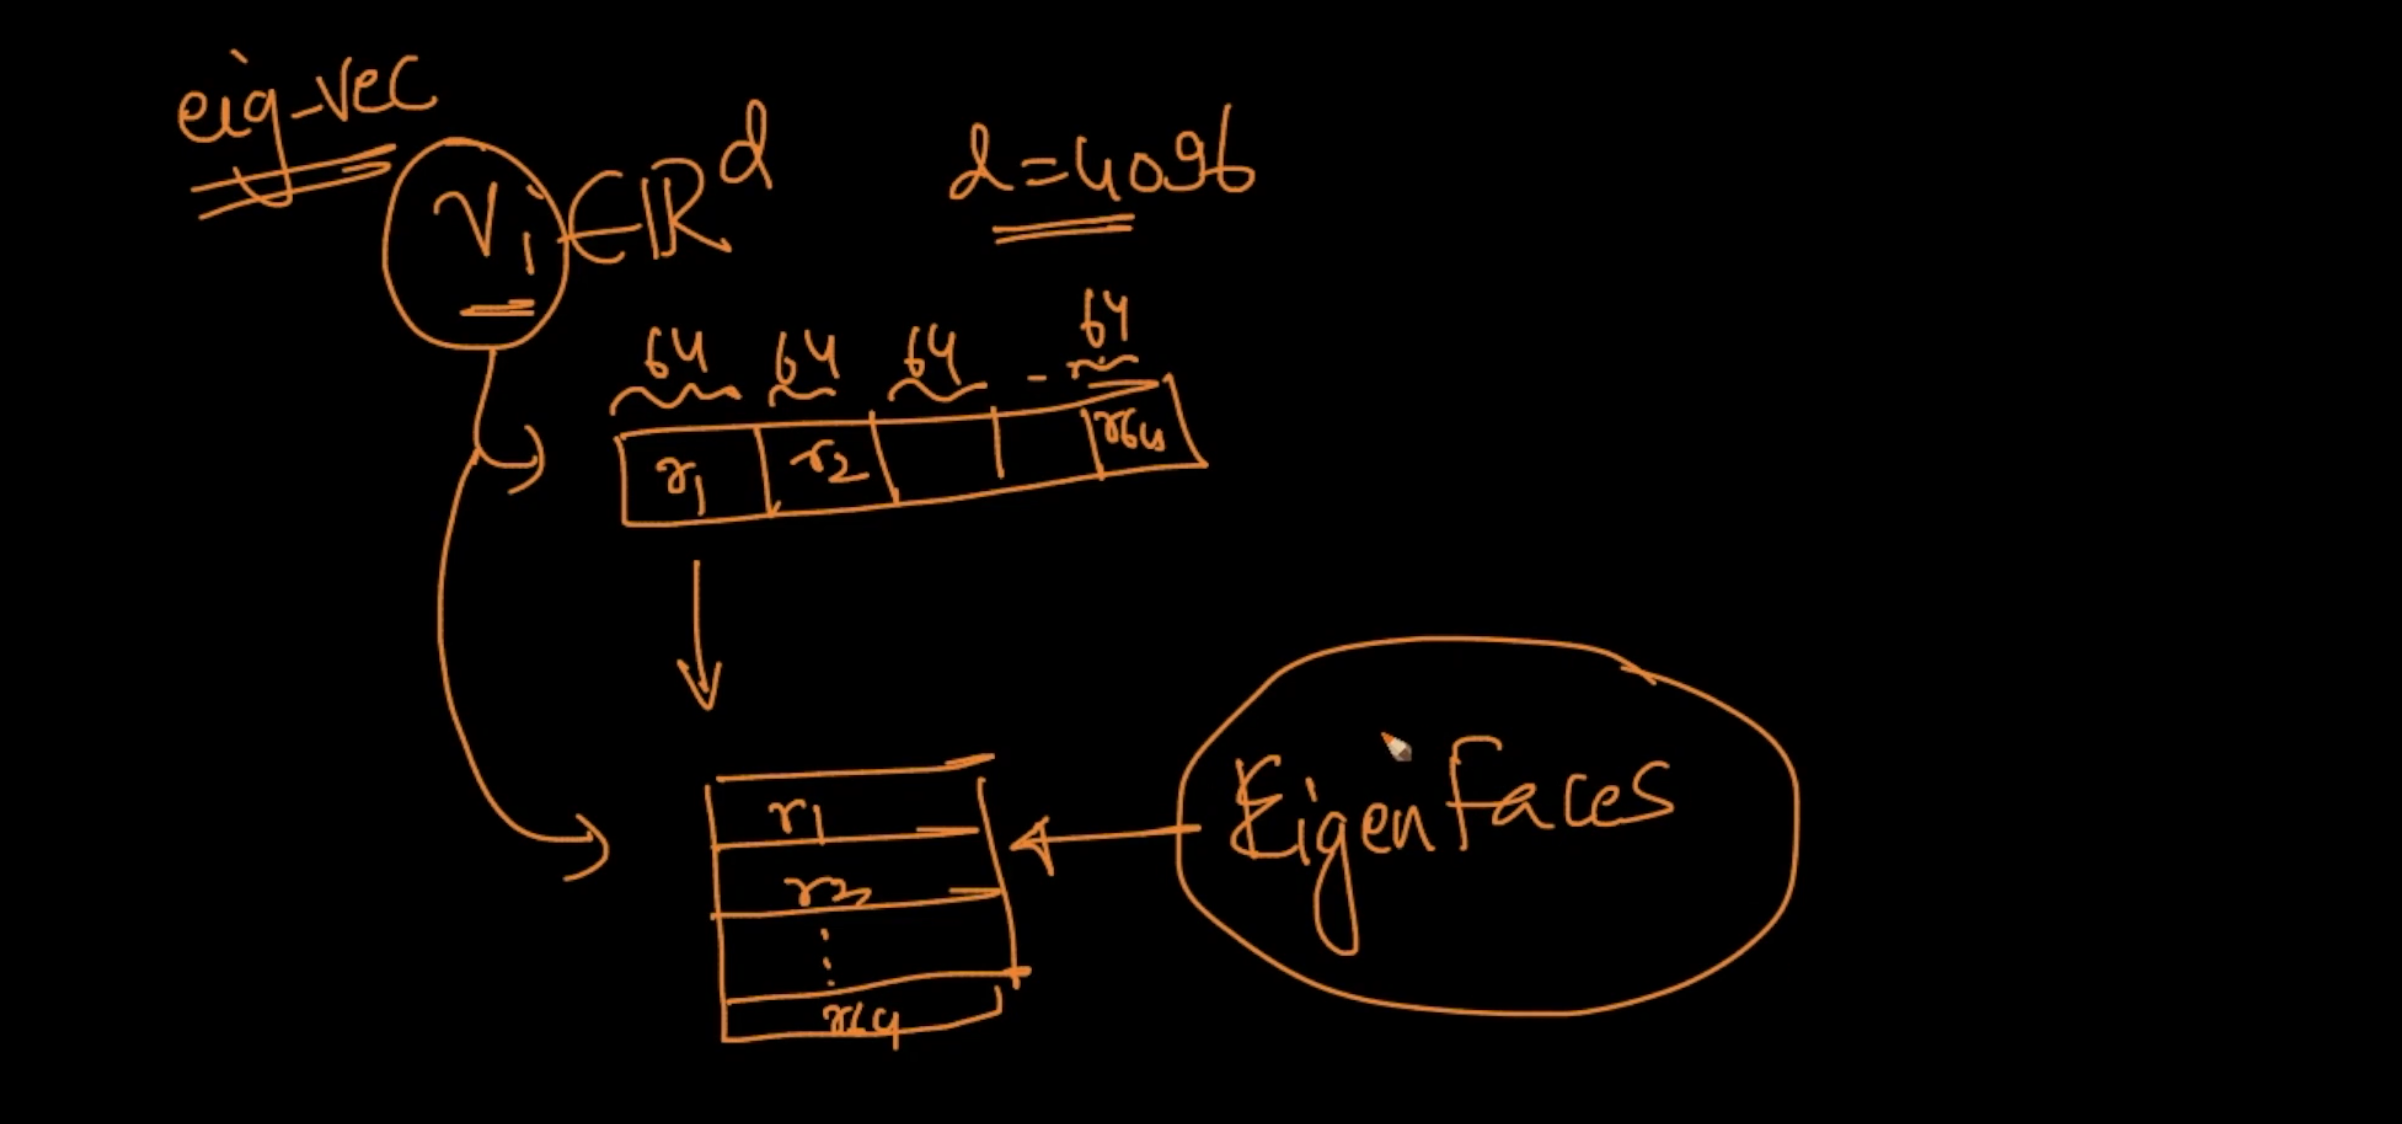 eig-vec
V1 ∈ ℝ^d
d=4096
64 64 64 - 64
r1 r2 r64
r1
r2
⋮
r64
Eigen Faces